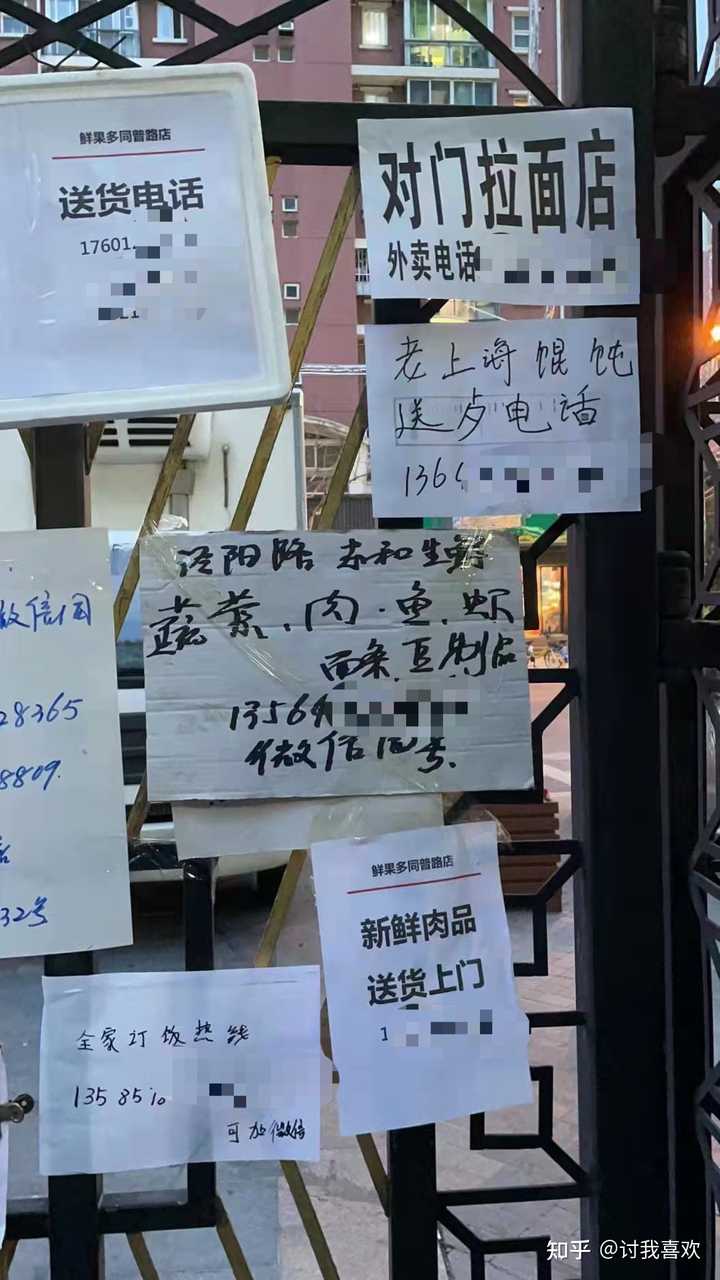 鲜果多同普路店
送货电话
17601
对门拉面店
外卖电话
老上海馄饨
送歺电话
136
微信同
28365
8809.
32号
泾阳路 禾和生鲜
蔬菜、肉·鱼.虾
面条.豆制品
13564
微信同号.
鲜果多同普路店
新鲜肉品
送货上门
1
全家订饭热线
1358510
可加微信
知乎 @讨我喜欢